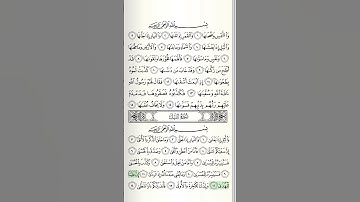 بِسْمِ اللَّهِ الرَّحْمَٰنِ الرَّحِيمِ
وَالشَّمْسِ وَضُحَاهَا ١ وَالْقَمَرِ إِذَا تَلَاهَا ٢ وَالنَّهَارِ إِذَا جَلَّاهَا ٣
وَاللَّيْلِ إِذَا يَغْشَاهَا ٤ وَالسَّمَاءِ وَمَا بَنَاهَا ٥ وَالْأَرْضِ وَمَا طَحَاهَا
٦ وَنَفْسٍ وَمَا سَوَّاهَا ٧ فَأَلْهَمَهَا فُجُورَهَا وَتَقْوَاهَا ٨ قَدْ
أَفْلَحَ مَن زَكَّاهَا ٩ وَقَدْ خَابَ مَن دَسَّاهَا ١٠ كَذَّبَتْ ثَمُودُ
بِطَغْوَاهَا ١١ إِذِ انبَعَثَ أَشْقَاهَا ١٢ فَقَالَ لَهُمْ رَسُولُ اللَّهِ
نَاقَةَ اللَّهِ وَسُقْيَاهَا ١٣ فَكَذَّبُوهُ فَعَقَرُوهَا فَدَمْدَمَ
عَلَيْهِمْ رَبُّهُم بِذَنبِهِمْ فَسَوَّاهَا ١٤ وَلَا يَخَافُ عُقْبَاهَا ١٥
سُورَةُ اللَّيْلِ
بِسْمِ اللَّهِ الرَّحْمَٰنِ الرَّحِيمِ
وَاللَّيْلِ إِذَا يَغْشَىٰ ١ وَالنَّهَارِ إِذَا تَجَلَّىٰ ٢ وَمَا خَلَقَ الذَّكَرَ وَالْأُنثَىٰ ٣
إِنَّ سَعْيَكُمْ لَشَتَّىٰ ٤ فَأَمَّا مَنْ أَعْطَىٰ وَاتَّقَىٰ ٥ وَصَدَّقَ بِالْحُسْنَىٰ ٦
فَسَنُيَسِّرُهُ لِلْيُسْرَىٰ ٧ وَأَمَّا مَن بَخِلَ وَاسْتَغْنَىٰ ٨ وَكَذَّبَ بِالْحُسْنَىٰ ٩
فَسَنُيَسِّرُهُ لِلْعُسْرَىٰ ١٠ وَمَا يُغْنِي عَنْهُ مَالُهُ إِذَا تَرَدَّىٰ ١١ إِنَّ عَلَيْنَا
لَلْهُدَىٰ ١٢ وَإِنَّ لَنَا لَلْآخِرَةَ وَالْأُولَىٰ ١٣ فَأَنذَرْتُكُمْ نَارًا تَلَظَّىٰ ١٤